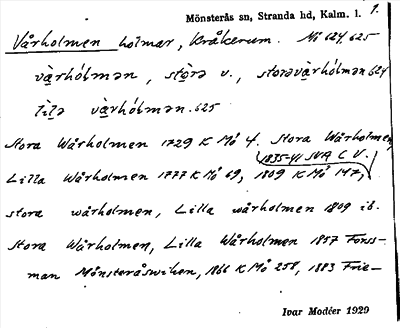 Mönsterås sn, Stranda hd, Kalm. l. 1.
Vårholmen holmar, Kråkerum. Mö 624, 625
vàrhólmən, stòrə v., storəvàrhólmən 624
lìlə vàrhólmən. 625
Stora Wårholmen 1729 K Mö 4. Stora Wårholmen,
1835-41 SVA C V.
Lilla Wårholmen 1777 K Mö 69, 1809 K Mö 147,
stora wårholmen, Lilla wårholmen 1809 ib.
Stora Wårholmen, Lilla Wårholmen 1857 Forss-
man Mönsteråswiken, 1866 K Mö 258, 1883 Frie-
Ivar Modéer 1929